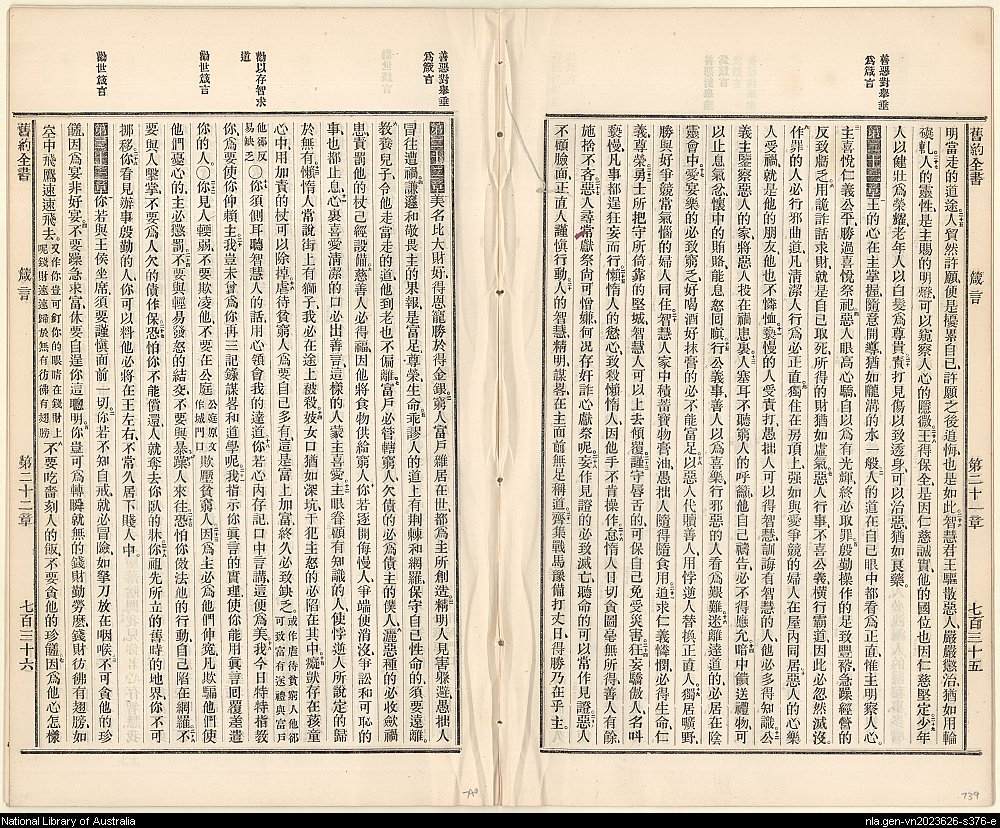 善惡對舉垂
爲箴言
舊約全書
箴言
第二十一章
七百三十五
明當走的道途人貿然許願便是擾累自己許願之後追悔也是如此智慧君王驅散惡人嚴嚴懲治猶如用輪
碾軋人的靈性是主賜的明燈可以窺察人心的隱微王得保全是因仁慈誠實他的國位也因仁慈堅定少年
人以健壯爲榮耀老年人以白髮爲尊貴責打見傷以致透身可以治惡猶如良藥
第二十一章王的心在主掌握隨意開導猶如隴溝的水一般人的道在自己眼中都看爲正直惟主明察人心
主喜悅仁義公平勝過喜悅祭祀惡人眼高心驕自以爲有光輝終必取罪殷勤操作的足致豐裕急躁經營的
反致窮乏用詭詐話求財就是自己取死所得的財猶如虛氣惡人行事不喜公義橫行霸道因此必忽然滅沒
作罪的人必行邪曲道凡清潔人行爲必正直獨在在房頂上強如與愛爭競的婦人在屋內同居惡人的心樂
人受禍就是他的朋友他也不憐恤褻慢的人受責打愚拙人可以得智慧訓誨有智慧的人他必多得知識公
義主鑒察惡人的家將惡人投在禍患裏人塞耳不聽窮人的呼籲他自己禱告必不得應允暗中饋送禮物可
以止息氣忿懷中的賄賂能息怒回嗔行公義事善人以爲喜樂行邪惡的人看爲艱難迷離達道的必居在陰
靈會中愛宴樂的必致窮乏好喝酒好抹膏的必不能富足以惡人代贖善人用悖逆人替換正直人獨居曠野
勝與好爭競常氣惱的婦人同住智慧人家中積蓄寶物膏油愚拙人隨得隨食用追求仁義憐憫必得生命仁
義尊榮勇士所把守所倚靠的堅城智慧人可以上去傾覆謹守唇舌的可保自己免受災害狂妄驕傲人名叫
褻慢凡事都逞狂妄而行懶惰人的慾心致殺懶惰人因他手不肯操作怠惰人日切貪圖毫無所得善人有餘
施捨不吝惡人尋常獻祭尚可憎嫌何況存奸詐心獻祭呢妄作見證的必致滅亡聽命的可以常作見證惡人
不顧臉面正直人謹慎行動人的智慧精明謀畧在主面前無足稱道齊集戰馬豫備打丈日得勝乃在乎主
善惡對舉垂
爲箴言
勸以存智求
道
勸世箴言
勸世箴言
第二十二章美名比大財好得恩寵勝於得金銀窮人富戶雖居在世都爲主所創造精明人見害躲避愚拙人
冒往遭禍謙遜和敬畏主的果報是富足尊榮生命乖謬人的道上有荆棘和網羅保守自己性命的須要遠離
教養兒子令他走當走的道他到老也不偏離富戶必管轄窮人欠債的必爲債主的僕人灑惡種的必收歛禍
患責罰他的杖己經設備慈善人必得福因他將食物供給窮人你若逐開侮慢人爭端便消沒爭訟和可恥的
事也都止息心裏喜愛清潔的口必出善言這樣的人蒙主喜愛主眼眷顧有知識的人使悖逆人所說定的歸
於無有懶惰人常說街上有獅子我必在途上被殺妓女口猶如深坑干犯主怒的必陷在其中癡獃存在孩童
心中用加責的杖可以除掉虐待貧窮人爲要自己多有這是富上加富終久必致缺乏或作虐待貧窮人他卻可致富有送禮與富戶
他卻反易缺乏〇你須側耳聽智慧人的話用心領會我的達道你若心內存記口中言講這便爲美我今日特特指敎
你爲要使你仰賴主我豈未曾爲你再三記錄謀畧和道學呢我指示你眞言的實理使你能用眞言囘覆差遣
你的人〇你見人輭弱不要欺凌他不要在公庭公庭原文作城門口欺壓貧窮人因爲主必爲他們伸寃凡欺騙他們使
他們憂心的主必懲罰不要與輕易發怒的結交不要與暴躁人來往恐怕你傚法他的行動自己陷在網羅不
要與人擊掌不要爲人欠的債作保恐怕你不能償還人就奪去你臥的牀你祖先所立的舊時的地界你不可
挪移你看見辦事殷勤的人你可以料他必將在王左右不常久居下賤人中
第二十三章你若與王侯坐席須要謹愼面前一切你若不知自戒就必冒險如拏刀放在咽喉不可貪他的珍
饈因爲宴非好宴不要躁急求富休要自逞你這聰明你豈可爲轉瞬就無的錢財勞歷錢財彷彿有翅膀如
空中飛鷹速速飛去又作你豈可釘你的眼睛在錢財上呢錢財速速歸於無有彷彿有翅膀不要吃嗇刻人的飯不要貪他的珍饈因爲他心怎樣
舊約全書
箴言
第二十二章
七百三十六
739
National Library of Australia
nla.gen-vn2023626-s376-e